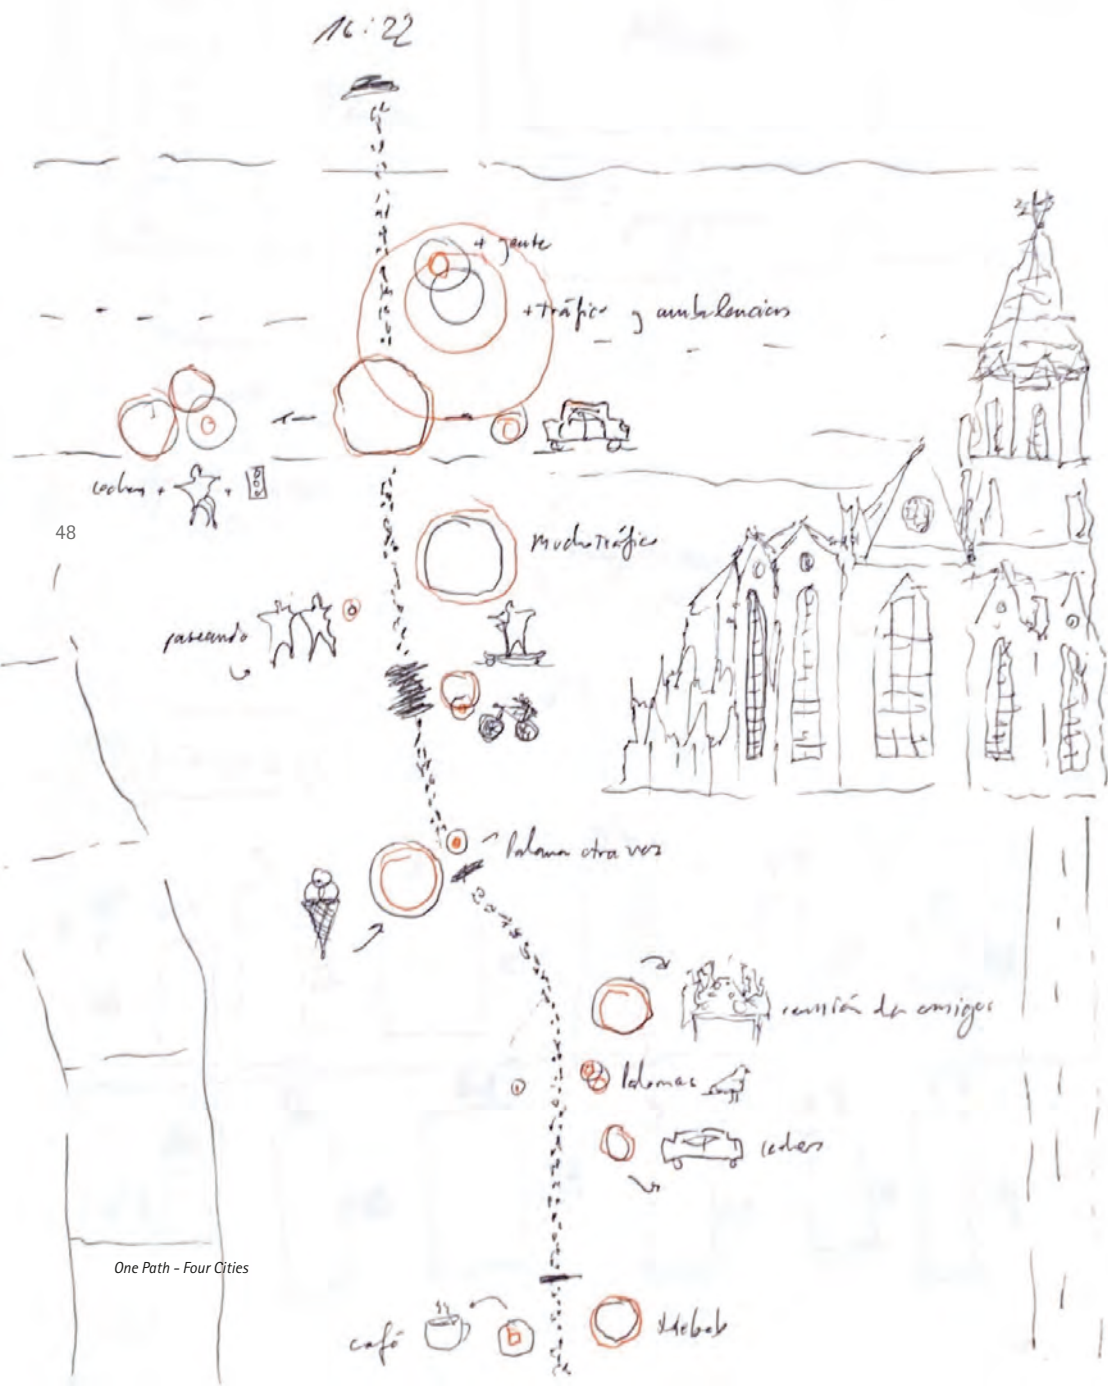 16:22
+ gente
+ tráfico y ambulencias
coches + +
48
mucho tráfico
paseando
Paloma otra vez
reunión de amigos
Palomas
coches
One Path - Four Cities
café
Kebab